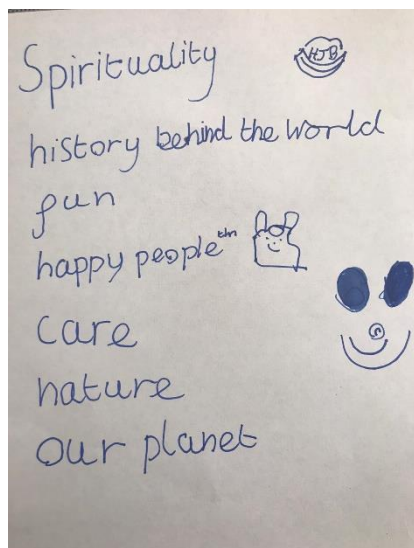 Spirituality
HJB
history behind the world
fun
happy people tm
care
nature
our planet